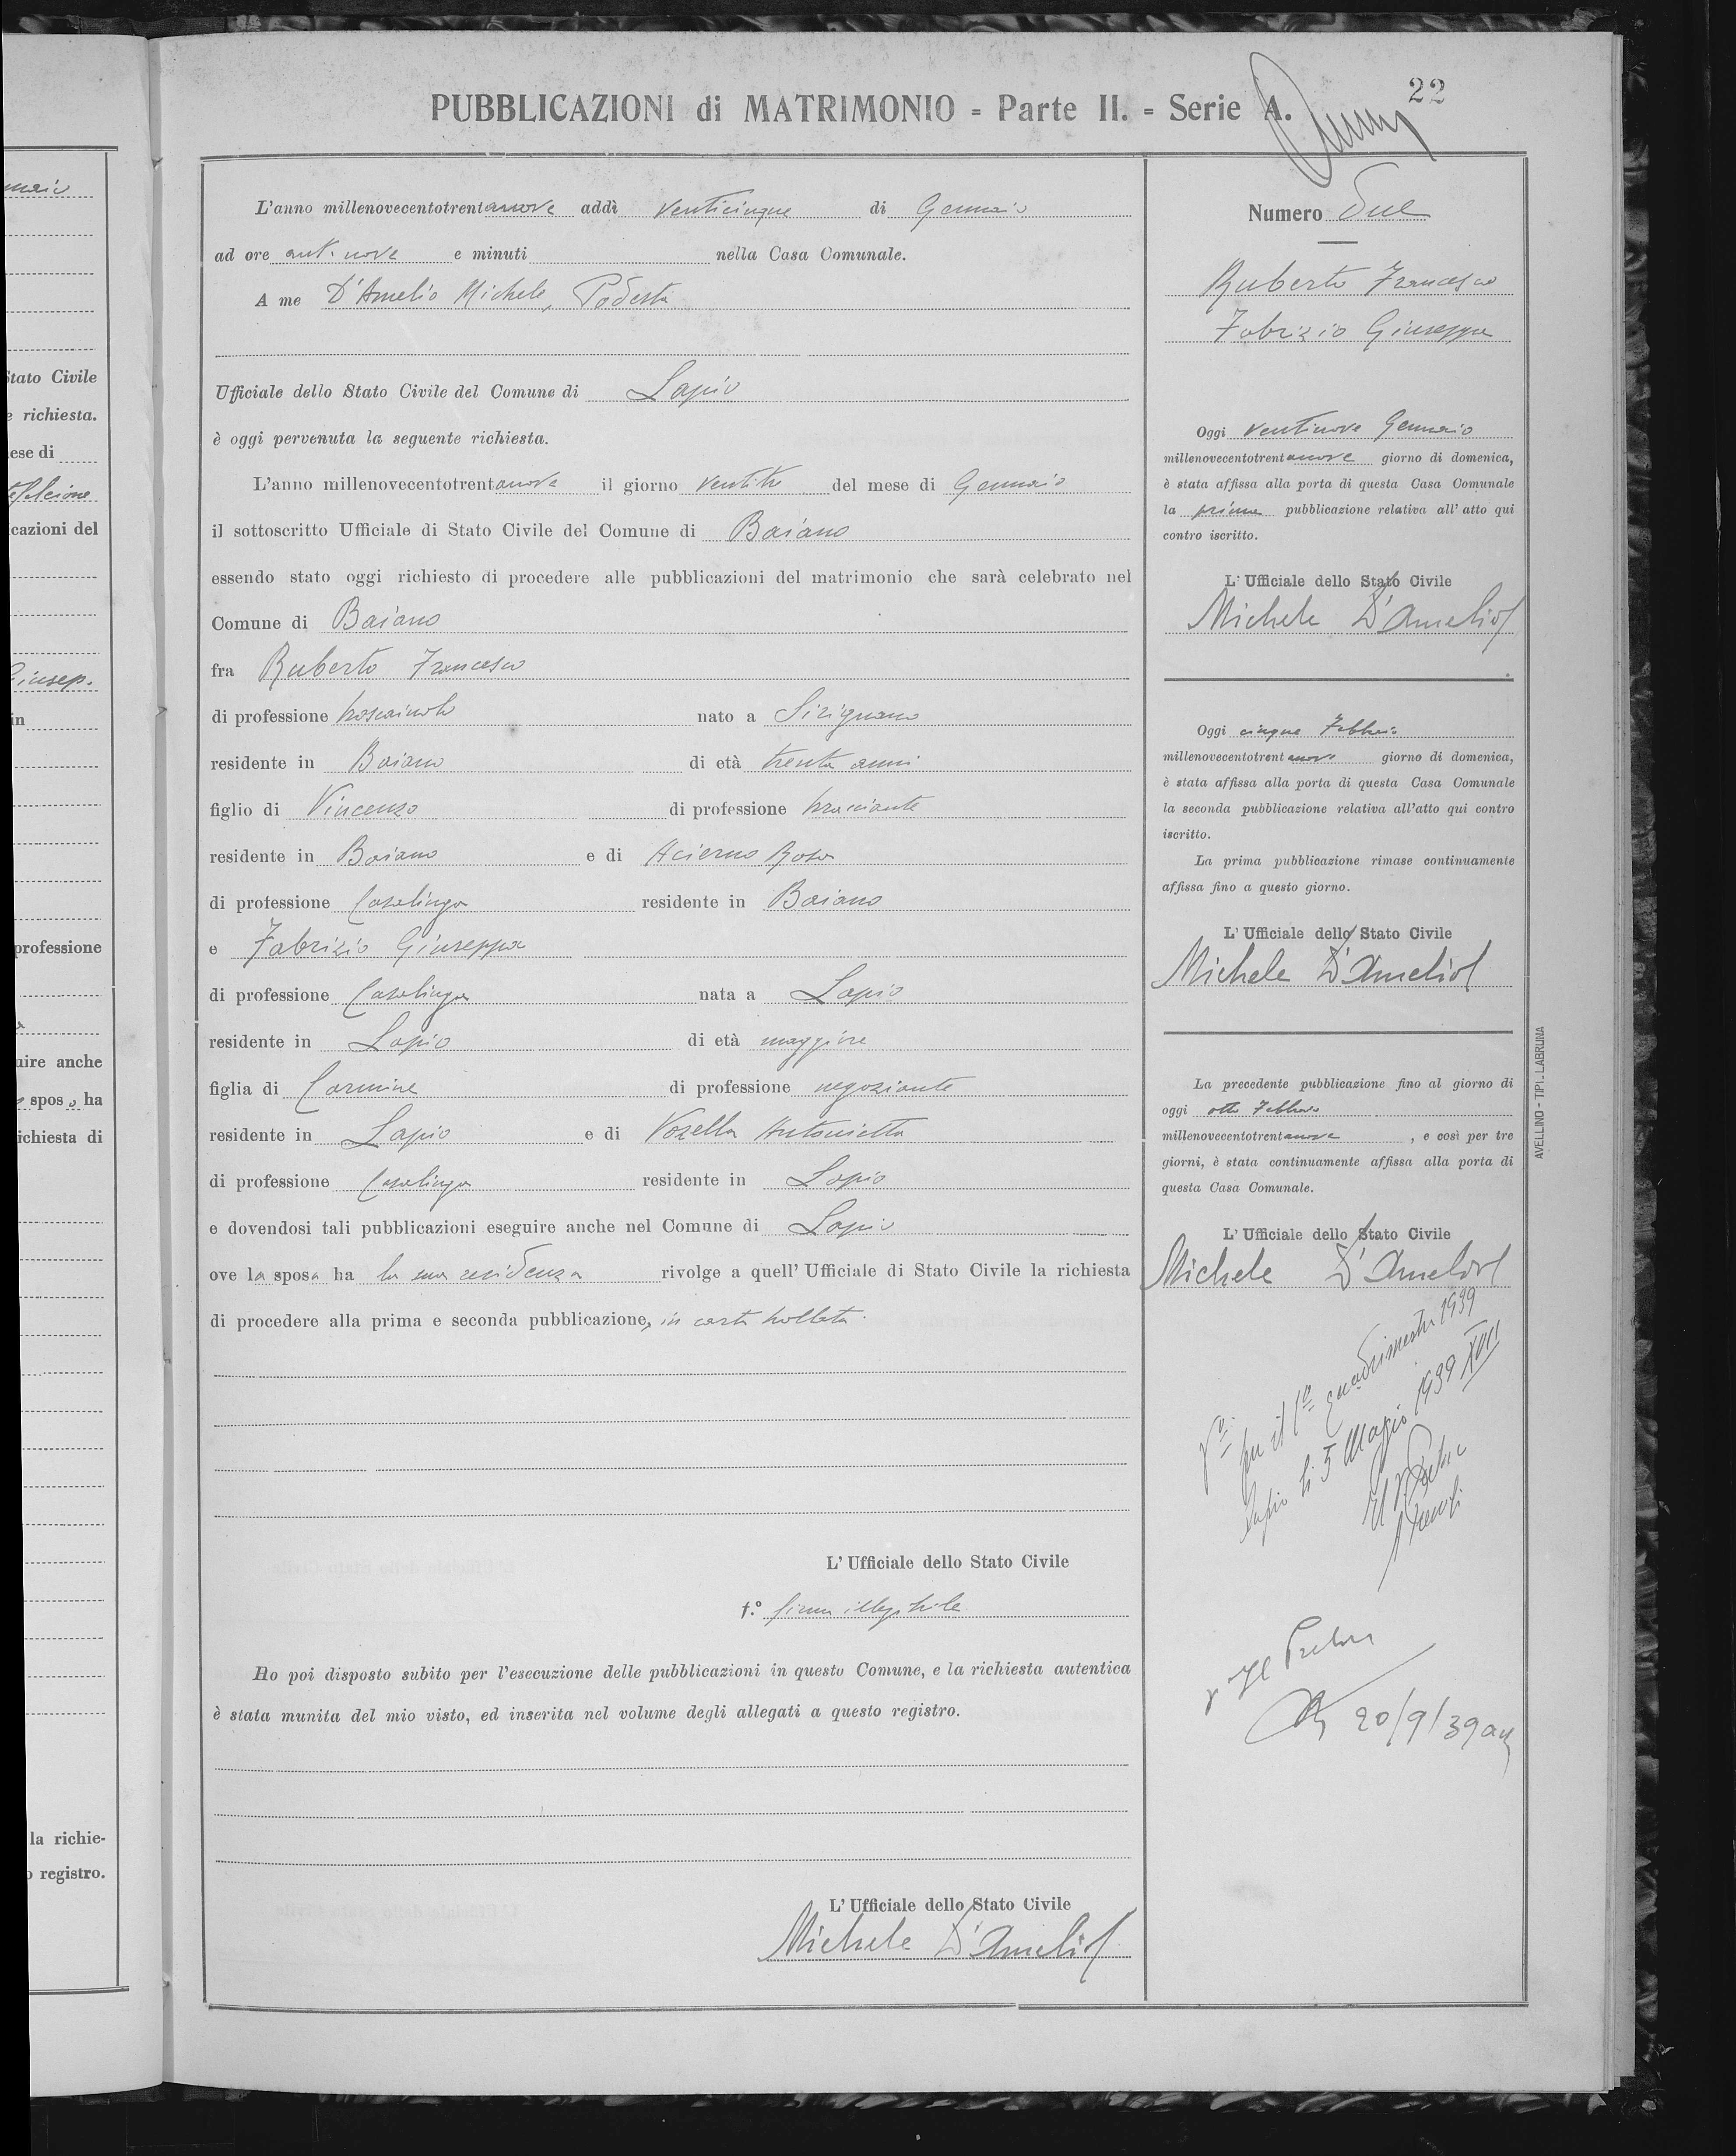 22
PUBBLICAZIONI di MATRIMONIO = Parte II. = Serie A.
L'anno millenovecentotrentanove addì venticinque di Gennaio
ad ore ant. nove e minuti nella Casa Comunale.
A me D'Amelio Michele, Podestà
Ufficiale dello Stato Civile del Comune di Lapio
è oggi pervenuta la seguente richiesta.
L'anno millenovecentotrentanove il giorno ventitre del mese di Gennaio
il sottoscritto Ufficiale di Stato Civile del Comune di Baiano
essendo stato oggi richiesto di procedere alle pubblicazioni del matrimonio che sarà celebrato nel
Comune di Baiano
fra Ruberto Francesco
di professione boscaiuolo nato a Sirignano
residente in Baiano di età trenta anni
figlio di Vincenzo di professione bracciante
residente in Baiano e di Acierno Rosa
di professione Casalinga residente in Baiano
e Fabrizio Giuseppa
di professione Casalinga nata a Lapio
residente in Lapio di età maggiore
figlia di Carmine di professione negoziante
residente in Lapio e di Vozella Antonietta
di professione Casalinga residente in Lapio
e dovendosi tali pubblicazioni eseguire anche nel Comune di Lapio
ove la sposa ha la sua residenza rivolge a quell' Ufficiale di Stato Civile la richiesta
di procedere alla prima e seconda pubblicazione, in carta bollata.
L' Ufficiale dello Stato Civile
f.° firma illegibile
Ho poi disposto subito per l'esecuzione delle pubblicazioni in questo Comune, e la richiesta autentica
è stata munita del mio visto, ed inserita nel volume degli allegati a questo registro.
L' Ufficiale dello Stato Civile
Michele D'Amelio
Numero Due
Ruberto Francesco
Fabrizio Giuseppa
Oggi ventinove Gennaio
millenovecentotrentanove giorno di domenica,
è stata affissa alla porta di questa Casa Comunale
la prima pubblicazione relativa all' atto qui
contro iscritto.
L' Ufficiale dello Stato Civile
Michele D'Amelio
Oggi cinque Febbraio
millenovecentotrentanove giorno di domenica,
è stata affissa alla porta di questa Casa Comunale
la seconda pubblicazione relativa all'atto qui contro
iscritto.
La prima pubblicazione rimase continuamente
affissa fino a questo giorno.
L' Ufficiale dello Stato Civile
Michele D'Amelio
La precedente pubblicazione fino al giorno di
oggi otto Febbraio
millenovecentotrentanove, e così per tre
giorni, è stata continuamente affissa alla porta di
questa Casa Comunale.
L' Ufficiale dello Stato Civile
Michele D'Amelio
V° per il 1° quadrimestre 1939
Lapio li 5 Maggio 1939 XVII
Il
Il Pretore
20/9/39
AVELLINO - TIP. LABRUNA
Stato Civile
richiesta.
ese di
cazioni del
Giusep.
in
professione
uire anche
sposo ha
ichiesta di
la richie-
registro.